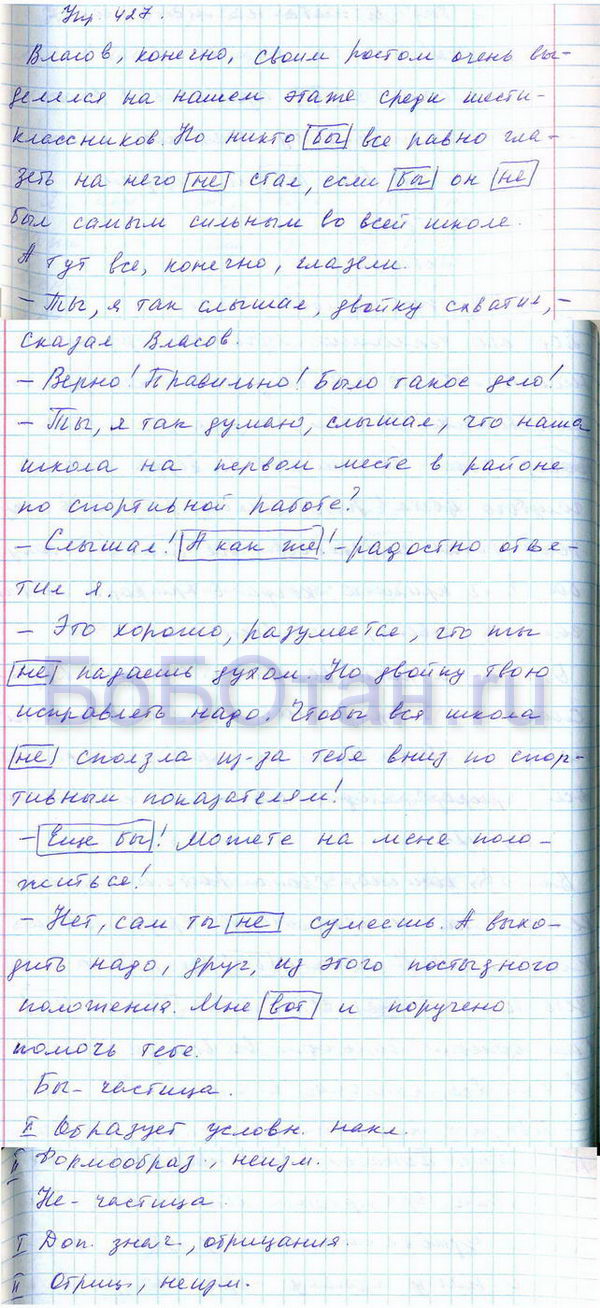 Упр. 427.
Власов, конечно, своим ростом очень вы-
делялся на нашем этаже среди шести-
классников. Но никто бы все равно гла-
зеть на него не стал, если бы он не
был самым сильным во всей школе.
А тут все, конечно, глазели.
– Ты, я так слышал, двойку схватил, –
сказал Власов.
– Верно! Правильно! Было такое дело!
– Ты, я так думаю, слышал, что наша
школа на первом месте в районе
по спортивной работе?
– Слышал! А как же! – радостно отве-
тил я.
– Это хорошо, разумеется, что ты
не падаешь духом. Но двойку твою
исправлять надо. Чтобы вся школа
не сползла из-за тебя вниз по спор-
тивным показателям!
– Еще бы! Можете на меня поло-
житься!
– Нет, сам ты не сумеешь. А выхо-
дить надо, друг, из этого постыдного
положения. Мне вот и поручено
помочь тебе.
Бы – частица.
I Образует условн. накл.
II Формообраз., неизм.
Не – частица.
I Доп. знач., отрицания.
II Отриц., неизм.
БоБОтан.ru